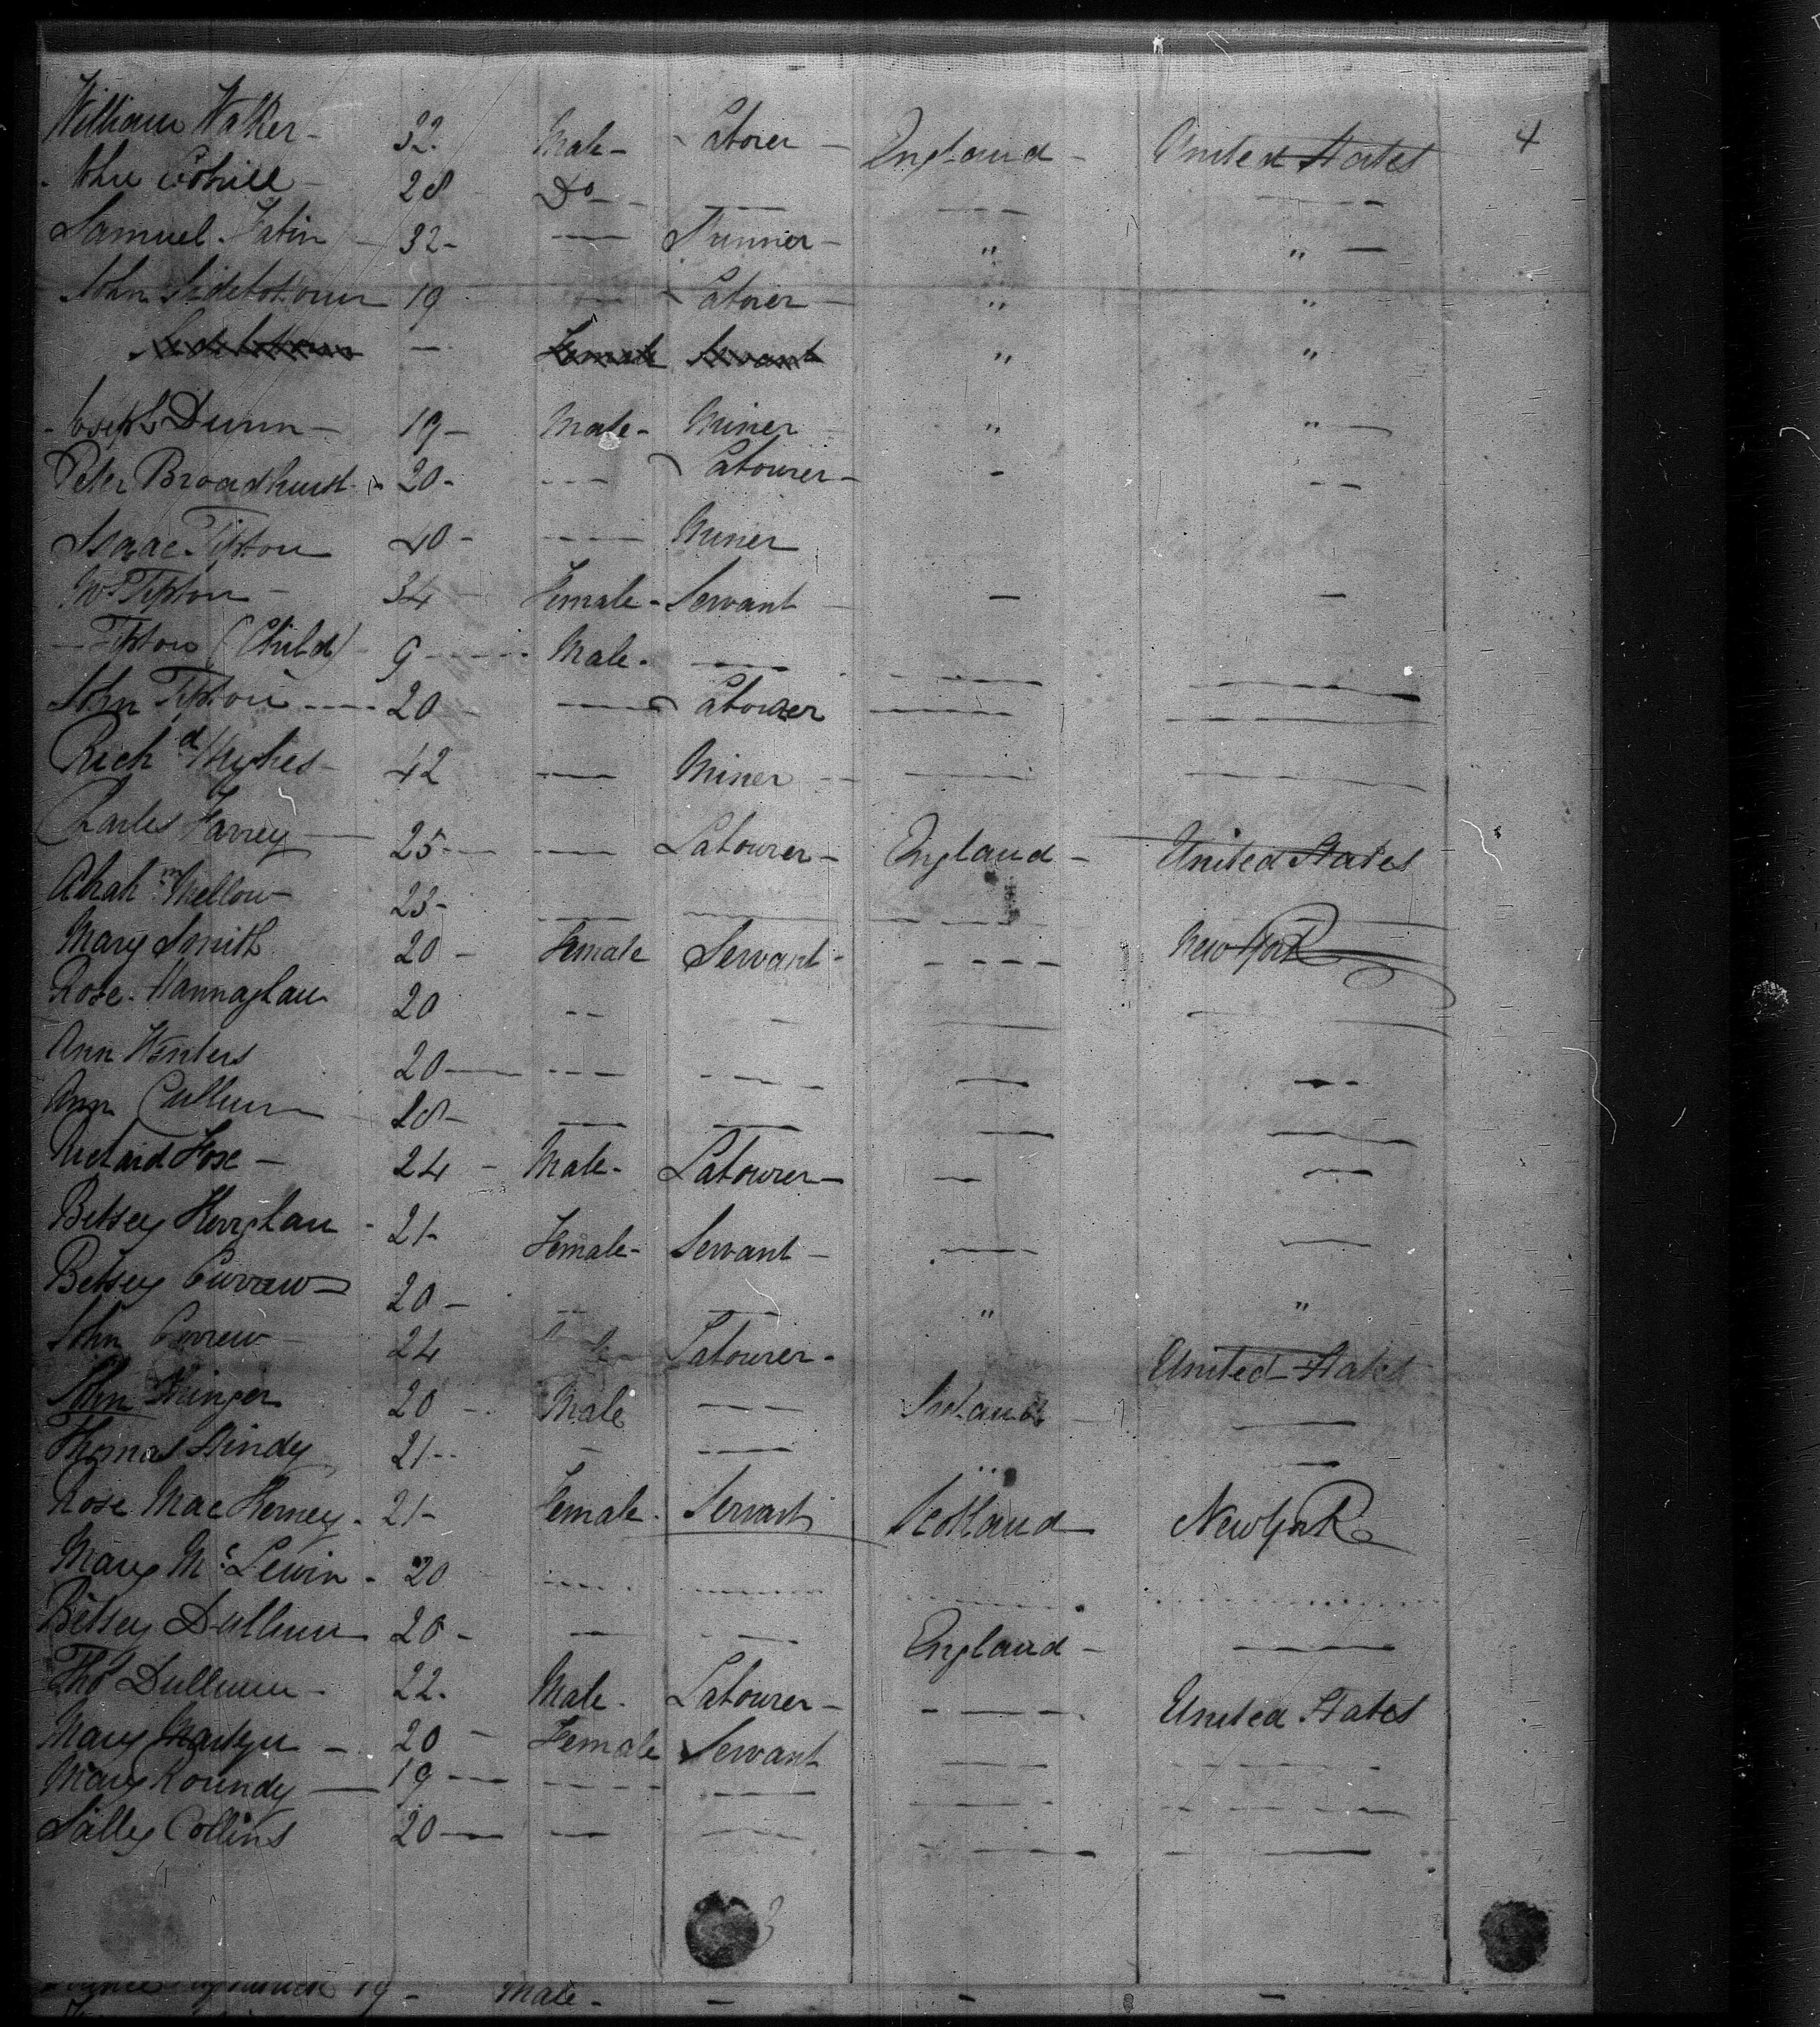 4
William Walker - 32. Male - Laborer - England - United States
John 28 Do - - — — - — - — —
Samuel 32 - — - " " —
John Sidebotham 19 — Laborer - " "
— Female Servant " "
Joseph Dunn - 19 - Male - Miner - " " —
Peter Broadhurst - 20 - - - - Labourer - - - -
Isaac Tipton 40 - - - - Miner
Mrs Tipton - 34 - Female - Servant - - -
— Tipton (Child) - 9 - - - - Male - — — —
John Tipton - - - - 20 - — Labourer - - - - — —
Richd Hughes - 42 — Miner - - — —
Charles Harvey - 25 - - — Labourer - England - United States
Abahm Mellow - 23 - — — - - - —
Mary Smith 20 - Female Servant - - - - - New York
Rose Hannaghan 20 - - - — —
Ann Winters 20 — - - - - - - — - -
Ann Cullum 28 - — — — —
Richard Hose - 24 - Male - Labourer - — —
Betsey - 21 - Female - Servant - — —
Betsey Currew - 20 - - - — " "
John Currew - 24 Labourer - United States
John 20 - Male - - - Ireland - —
Thomas Hindy 21 - - - — —
Rose Mac Herney - 21 - Female - Servant Scotland New York
Mary Mc Lewin - 20 - - - - - - - - - - - - - - - -
Betsey Dullum 20 - — - - England - —
Thos Dullum - 22 - Male - Labourer - - — - United States
Mary Martyn - 20 - Female Servant — - - -
Mary Roundy — 19 — - - - — — - - -
Sally Collins 20 — — — — - —
3
19 - Male - - - -